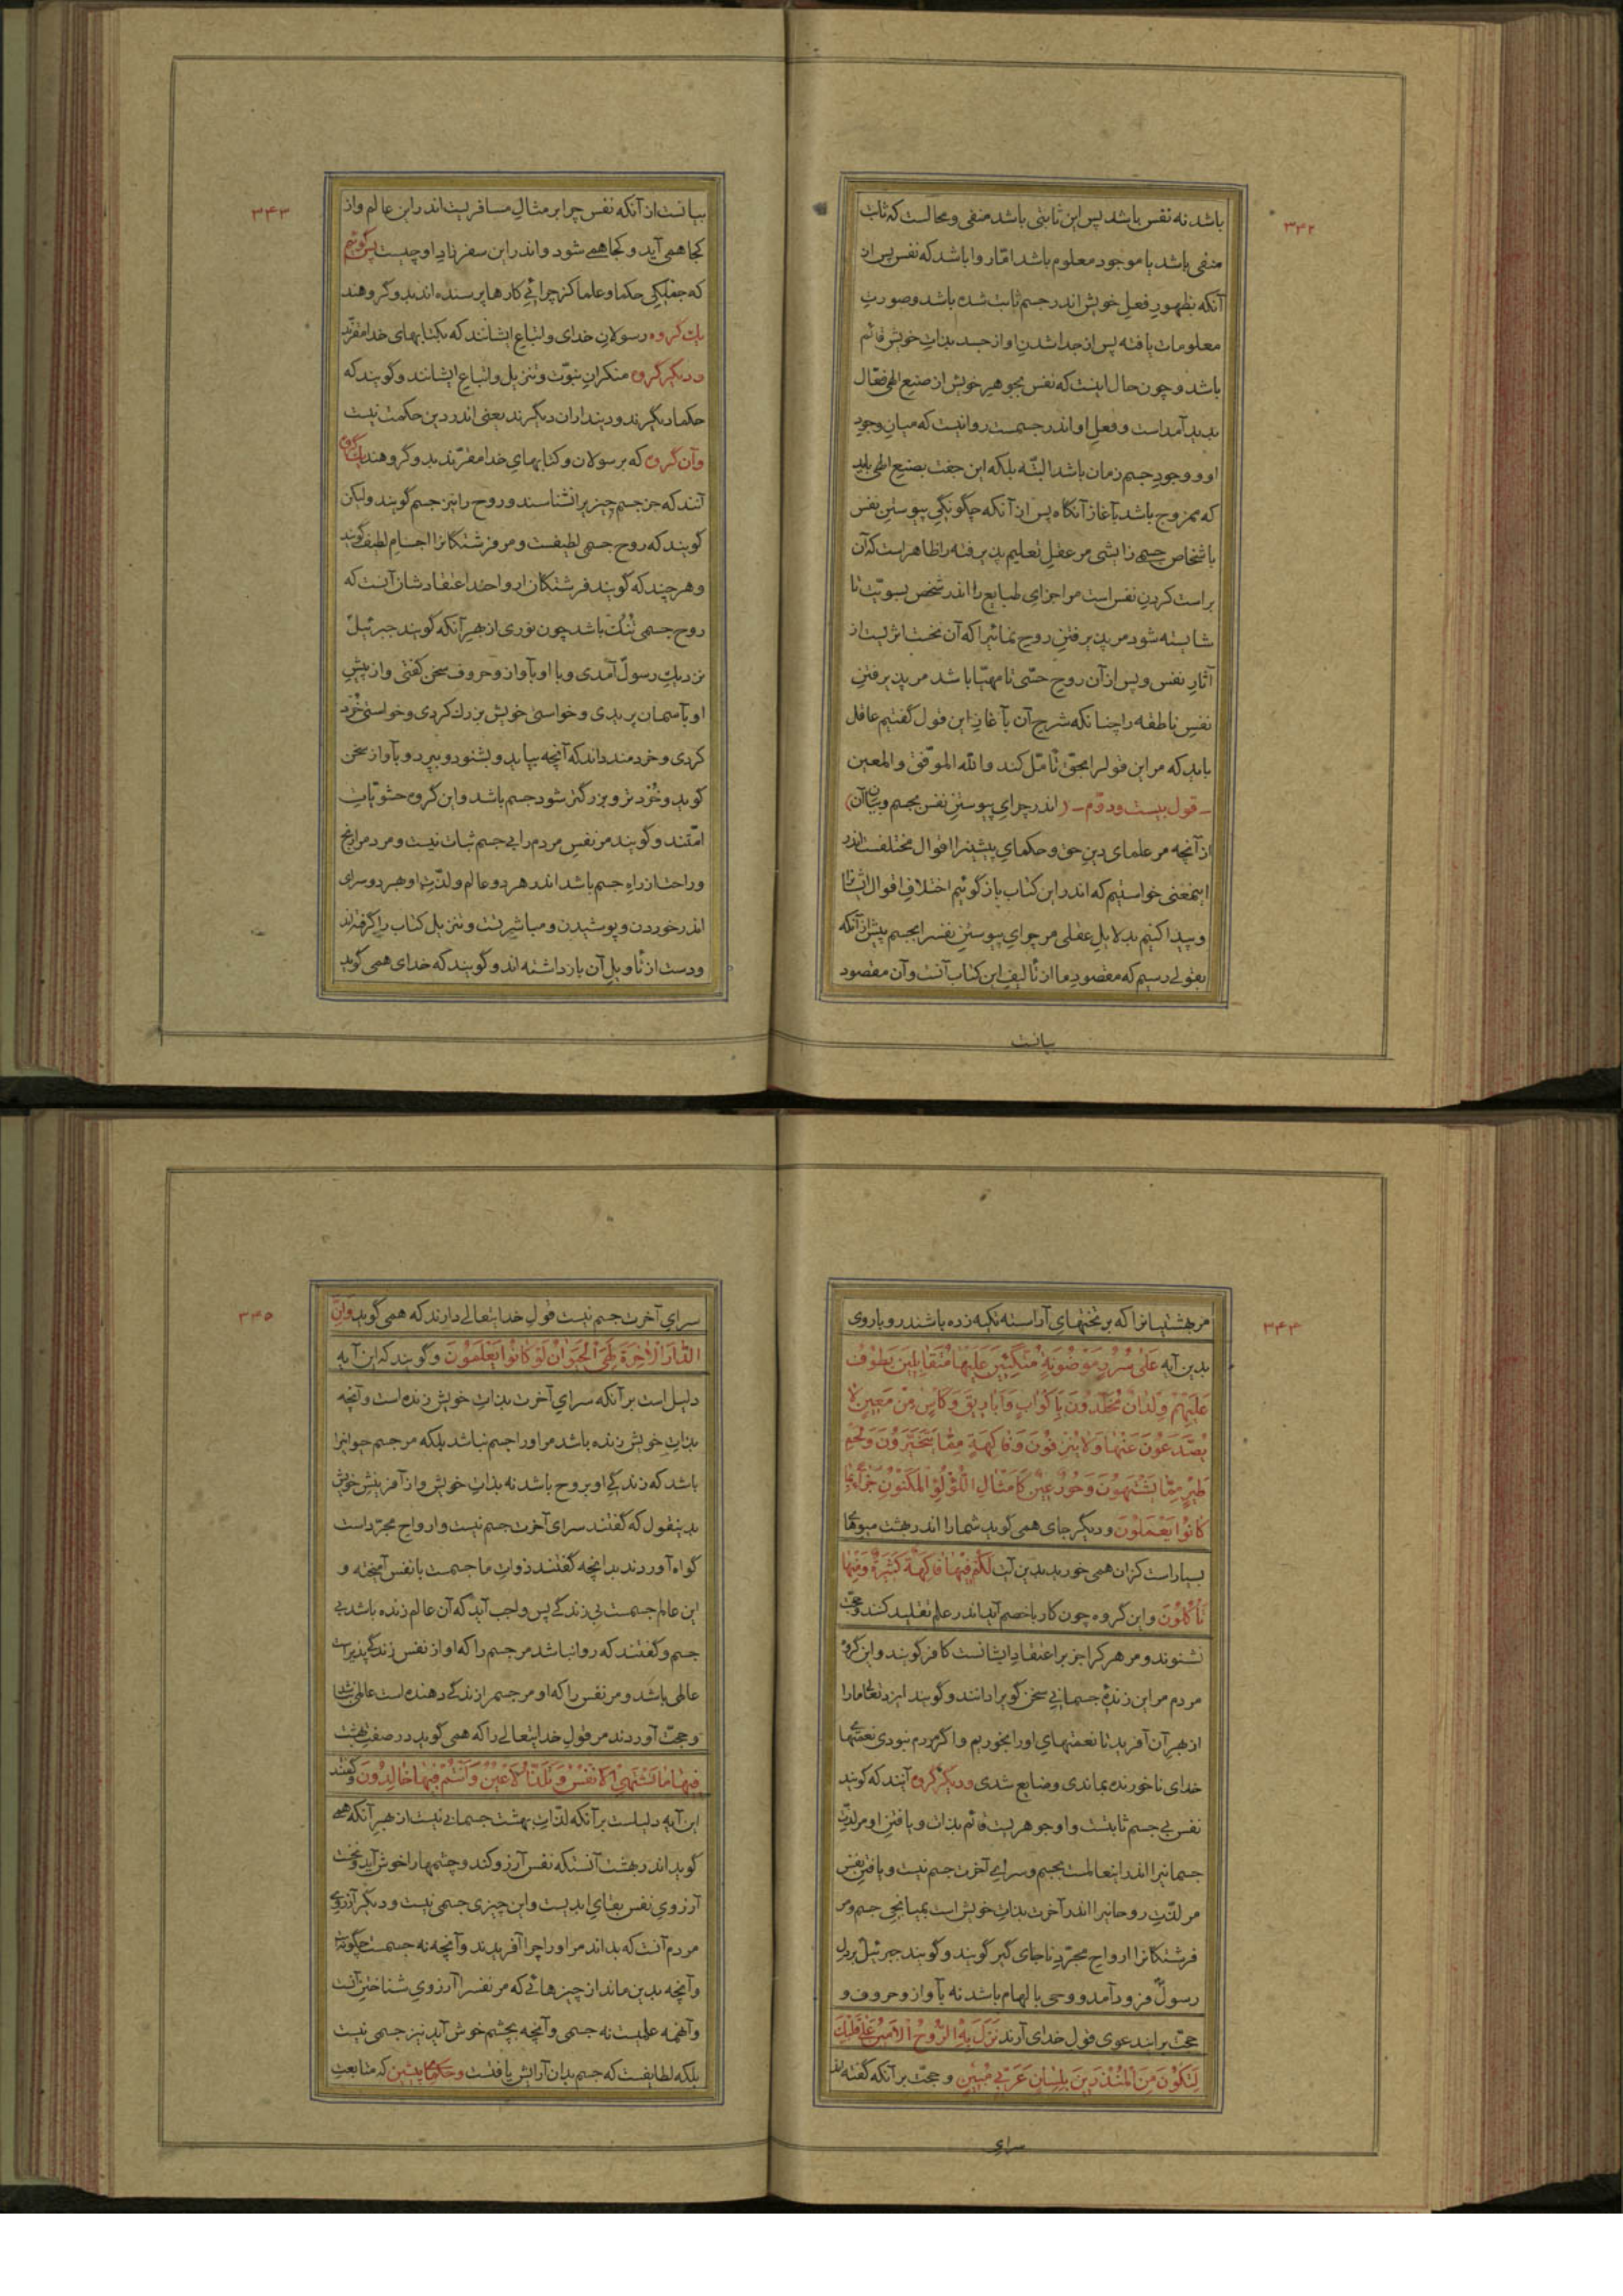 ۳۴۲
باشد نه نفس باشد پس این ثابتی باشد منفی و محالست که ثابت
منفی باشد یا موجود معلوم باشد امّا روا باشد که نفس پس از
آنکه بظهورِ فعلِ خویش اندر جسم ثابت شده باشد و صورتِ
معلومات یافته پس از جدا شدنِ او از جسد بذاتِ خویش قائم
باشد و چون حال اینست که نفس بجوهرِ خویش از صنیع الهی فعّال
پدید آمداست و فعلِ او اندر جسمست روا نیست که میانِ وجودِ
او و وجودِ جسم زمان باشد البتّه بلکه این جفت بصنیع الهی باید
که ممزوج باشد بآغاز آنگاه پس از آنکه چگونگیِ پیوستنِ نفس
باشخاصِ جسمی زایشی مر عقلِ تعلیم پذیرفته را ظاهر است که آن
براست کردنِ نفس است مر اجزایِ طبایع را اندر شخص بسویّت تا
شایسته شود مر پذیرفتنِ روحِ نمائیرا که آن نخست اثریست از
آثارِ نفس و پس از آن روحِ حسّی تا مهیّا باشد مر پذیرفتنِ
نفسِ ناطقه را چنانکه شرحِ آن بآغازِ این قول گفتیم عاقل
باید که مر این قولرا بحقّ تأمّل کند و الله الموفّق و المعین
ـ قول بیست و دوّم ـ (اندر چرایِ پیوستنِ نفس بجسم و بیان آن)
از آنچه مر علمای دینِ حق و حکمایِ پیشینرا اقوال مختلفست اندر
اینمعنی خواستیم که اندر این کتاب باز گوئیم اختلافِ اقوال ایشانرا
و پیدا کنیم بدلایلِ عقلی مر چرایِ پیوستنِ نفسرا بجسم پیش از آنکه
بقولے رسیم که مقصودِ ما از تألیفِ این کتاب آنست و آن مقصود
بیانست
۳۴۳
بیانست از آنکه نفس چرا بر مثالِ مسافریست اندر این عالم و از
کجا همی آید و کجا همے شود و اندر این سفر زادِ او چیست پس گوئیم
که جملگیِ حکما و علما کز چرائیِ کارها پرسنده اند بدو گروهند
یك گروه رسولانِ خدای و اتباعِ ایشانند که بکتابهای خدا مقرّند
و دیگر گروه منکرانِ نبوّت و تنزیل و اتباعِ ایشانند و گویند که
حکما دیگرند و دینداران دیگرند یعنی اندر دین حکمت نیست
و آن گروه که برسولان و کتابهایِ خدا مقرّند بدو گروهند یك گروه
آنند که جز جسم چیزیرا نشناسند و روح را نیز جسم گویند ولیکن
گویند که روح جسمی لطیفست و مر فرشتگانرا اجسامِ لطیف گویند
و هرچند که گویند فرشتگان ارواحند اعتقادشان آنست که
روح جسمی تُنُك باشد چون نوری از بهرِ آنکه گویند جبرئیل
نزدیكِ رسول آمدی و با او بآواز و حروف سخن گفتی و از پیشِ
او بآسمان پریدی و خواستی خویش بزرك کردی و خواستی خُرد
کردی و خردمند داند که آنچه بیاید و بشنود و بپرد و بآواز سخن
گوید و خُرد تر و بزرگتر شود جسم باشد و این گروه حشویّاتِ
امّتند و گویند مر نفسِ مردم را بی جسم ثبات نیست و مر مردم را رنج
و راحت از راهِ جسم باشد اندر هر دو عالم و لذّتِ او بهر دو سرای
اندر خوردن و پوشیدن و مباشرتست و تنزیل کتاب را گرفته اند
و دست از تأویلِ آن باز داشته اند و گویند که خدای همی گوید
۳۴۴
مر بهشتیانرا که بر تختهایِ آراسته تکیه زده باشند رو باروی
بدین آیه عَلٰی سُرُرٍ مَوْضُونَةٍ مُتَّكِئِینَ عَلَیْهَا مُتَقَابِلِینَ یَطُوفُ
عَلَیْهِمْ وِلْدَانٌ مُخَلَّدُونَ بِأَكْوَابٍ وَأَبَارِیقَ وَكَأْسٍ مِنْ مَعِینٍ لَا
یُصَدَّعُونَ عَنْهَا وَلَا یُنْزِفُونَ وَفَاكِهَةٍ مِمَّا یَتَخَیَّرُونَ وَلَحْمِ
طَیْرٍ مِمَّا یَشْتَهُونَ وَحُورٌ عِینٌ كَأَمْثَالِ اللُّؤْلُؤِ الْمَكْنُونِ جَزَاءً بِمَا
كَانُوا یَعْمَلُونَ و دیگر جای همی گوید شما را اندر بهشت میوهٔها
بسیار است کز ان همی خورید بدین آیت لَكُمْ فِیهَا فَاكِهَةٌ كَثِیرَةٌ وَمِنْهَا
تَأْكُلُونَ و این گروه چون کار با خصم آید اندر علم تقلید کنند و حجّت
نشنوند و مر هر کرا جز بر اعتقادِ ایشانست کافر گویند و این گروه
مردم مر این زندهٔ جسمانیِ سخن گویرا دانند و گویند ایزد تعالی ما را
از بهرِ آن آفرید تا نعمتهایِ او را بخوریم و اگر مردم نبودی نعمتهاے
خدای ناخورنده بماندی و ضایع شدی و دیگر گروه آنند که گویند
نفس بے جسم ثابتست و او جوهریست قائم بذات و یافتنِ او مر لذّتِ
جسمانیرا اندر اینعالمست بجسم و سرایے آخرت جسم نیست و یافتنِ نفس
مر لذّتِ روحانیرا اندر آخرت بذاتِ خویش است بمیانجیِ جسم و مر
فرشتگانرا ارواحِ مجرّدِ نا جای گیر گویند و گویند جبرئیل بر دلِ
رسول فرود آمد و وحی بالهام باشد نه بآواز و حروف و
حجّت بر ایندعوی قول خدای آرند نَزَلَ بِهِ الرُّوحُ الْأَمِینُ عَلٰی قَلْبِكَ
لِتَكُونَ مِنَ الْمُنْذِرِینَ بِلِسَانٍ عَرَبِیٍّ مُبِینٍ و حجّت بر آنکه گفته اند
سرای
۳۴۵
سرایِ آخرت جسم نیست قولِ خدایتعالے دارند که همی گوید وَإِنَّ
الدَّارَ الْآخِرَةَ لَهِیَ الْحَیَوَانُ لَوْ كَانُوا یَعْلَمُونَ و گویند که این آیه
دلیل است بر آنکه سرایِ آخرت بذاتِ خویش زنده است و آنچه
بذاتِ خویش زنده باشد مر او را جسم نباشد بلکه مر جسم حیوانرا
باشد که زندگےِ او بروح باشد نه بذاتِ خویش و از آفرینشِ خویش
بدینقول که گفتند سرای آخرت جسم نیست و ارواحِ مجرّد است
گواه آوردند بدانچه گفتند ذواتِ ما جسمست با نفس آمیخته و
این عالم جسمست بی زندگے پس واجب آید که آن عالم زنده باشد بے
جسم و گفتند که روا نباشد مر جسم را که او از نفس زندگے پذیر است
عالمی باشد و مر نفس را که او مر جسم را زندگے دهنده است عالمی نباشد
و حجّت آوردند مر قولِ خدایتعالے را که همی گوید در صفتِ بهشت
فِیهَا مَا تَشْتَهِی الْأَنْفُسُ وَتَلَذُّ الْأَعْیُنُ وَأَنْتُمْ فِیهَا خَالِدُونَ و گفتند
این آیه دلیلست بر آنکه لذّاتِ بهشت جسمانی نیست از بهرِ آنکه همے
گوید اندر بهشت آنستکه نفس آرزو کند و چشمها را خوش آید و نخست
آرزویِ نفس بقایِ ابدیست و این چیزی جسمی نیست و دیگر آرزوے
مردم آنست که بداند مر او را چرا آفریدند و آنچه نه جسمست چگونه است
و آنچه بدین ماند از چیزهائے که مر نفسرا آرزویِ شناختنِ آنست
و آنهمه علمیست نه جسمی و آنچه بچشم خوش آید نیز جسمی نیست
بلکه لطایفست که جسم بدان آرایش یافتست و حکمای پیشین که متابعتِ